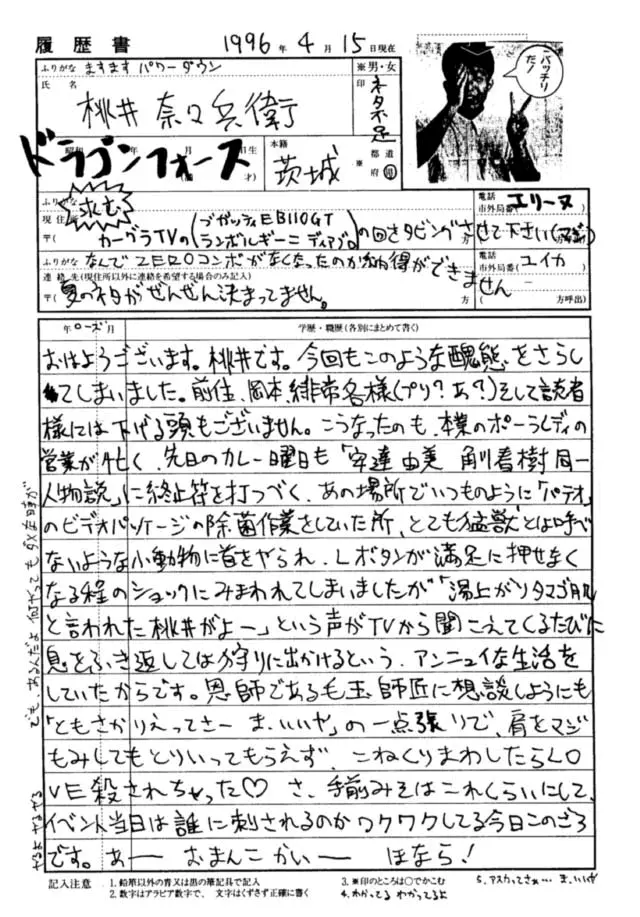 履歴書 1996年4月15日現在
ふりがな ますますパワーダウン ※男・女
氏名 桃井 奈々兵衛 印 ネタ不足
バッチリだ!
ドラゴンフォース
本籍 茨城 ※ 都道府県
ふりがな 電話 エリーヌ
求む
現住所 カーグラTVの(ブガッティEB110GT ランボルギーニ ディアブロ)の回をダビングさせて下さい(マジ)
市外局番( )
ふりがな なんでZEROコンボがなくなったのか納得ができません 電話 ユイカ
連絡先(現住所以外に連絡を希望する場合のみ記入) 市外局番( )
〒( 夏のネタがぜんぜん決まってません。 方 ( 方呼出)
年 ローズ 月 学歴・職歴(各別にまとめて書く)
おはようございます。桃井です。今回もこのような醜態をさらし
てしまいました。前住、岡本、緋常各様(プリ?あ?)そして読者
様には下げる頭もございません。こうなったのも、本業のポーラレディの
営業が忙く、先日のカレー曜日も「安達由美 角川春樹同一
人物説」に終止符を打つべく、あの場所でいつものように「パテオ」
のビデオパッケージの除菌作業をしていた所、とても猛獣とは呼べ
ないような小動物に首をやられ、Lボタンが満足に押せなく
なる程のショックにみまわれてしまいましたが「湯上がりタマゴ肌
と言われた桃井がよー」という声がTVから聞こえてくるたびに
息をふき返しては狩りに出かけるという、アンニュイな生活を
していたからです。恩師である毛玉師匠に想談しようにも
「ともさかりえってさー ま、いいや」の一点張りで、肩をマジ
もみしてもとりいってもらえず、こねくりまわしたらLO
VE殺されちゃった♡ さ、手前みそはこれくらいにして、
イベント当日は誰に刺されるのかワクワクしてる今日このごろ
です。あー おまんこかいー ほなら!
でも、あるんだよ 何がってもダメな時が
やるよ やるやる
記入注意 1.鉛筆以外の青又は黒の筆記具で記入
2.数字はアラビア数字で、文字はくずさず正確に書く
3.※印のところは○でかこむ
4.わかってる わかってるよ
5.アスカってさぁ… ま、いいや